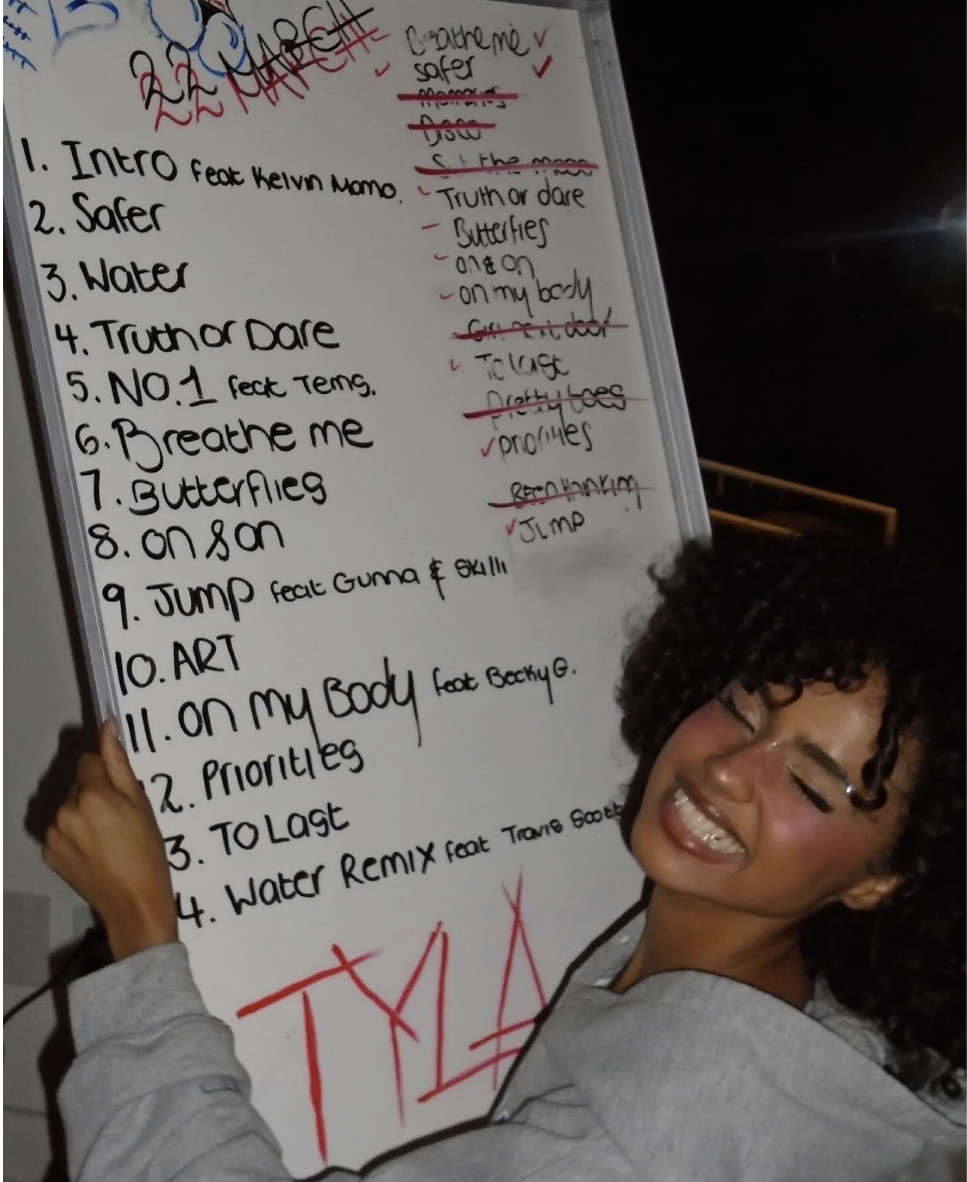 22 MARCH
1. Intro feat Kelvin Momo.
2. Safer
3. Water
4. Truth or Dare
5. NO.1 feat Tems.
6. Breathe me
7. Butterflies
8. on & on
9. Jump feat Gunna & Skilli
10. ART
11. on my Body feat Becky G.
2. Priorities
3. TO Last
4. Water Remix feat Travis Scott
TYLA
Breathe me
safer
Memories
Disco
the moon
Truth or dare
Butterfies
on & on
on my body
door
To last
Pretty toes
priorities
Been thinking
Jump